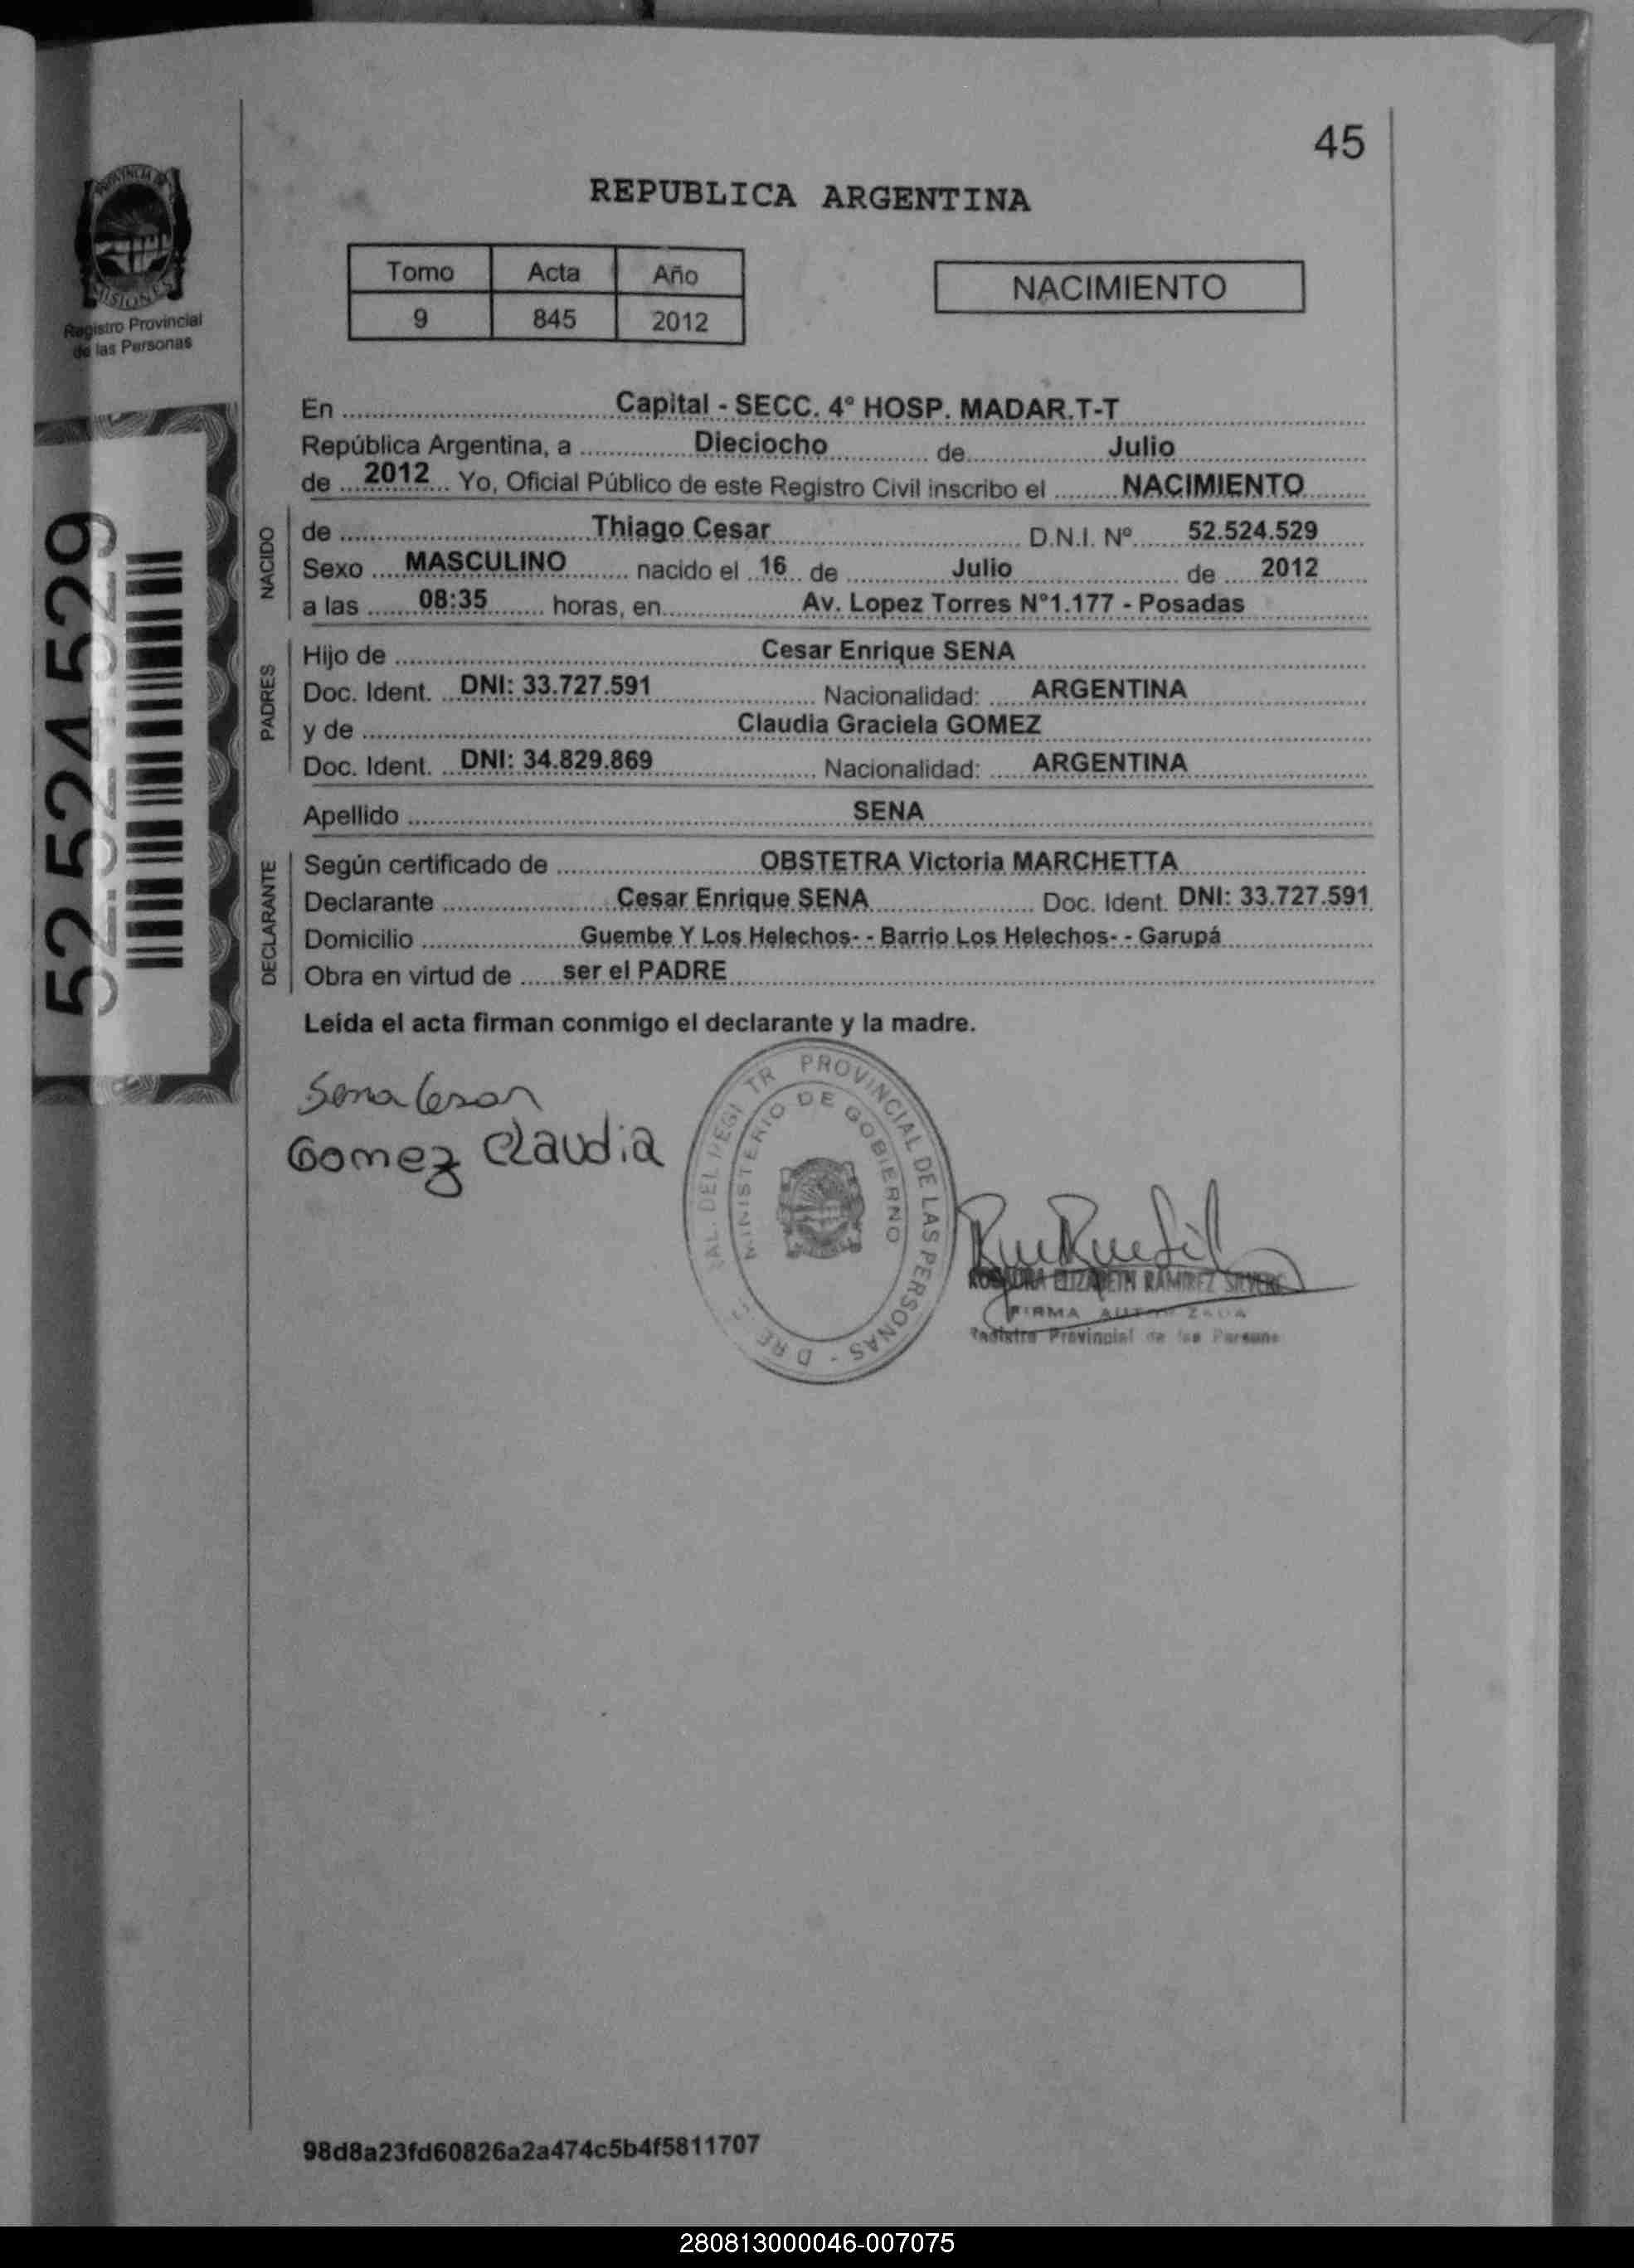 45
REPUBLICA ARGENTINA
PROVINCIA DE
MISIONES
Registro Provincial
de las Personas
Tomo Acta Año
9 845 2012
NACIMIENTO
52.524.529
En Capital - SECC. 4º HOSP. MADAR.T-T
República Argentina, a Dieciocho de Julio
de 2012 Yo, Oficial Público de este Registro Civil inscribo el NACIMIENTO
NACIDO
de Thiago Cesar D.N.I. Nº 52.524.529
Sexo MASCULINO nacido el 16 de Julio de 2012
a las 08:35 horas, en Av. Lopez Torres Nº1.177 - Posadas
PADRES
Hijo de Cesar Enrique SENA
Doc. Ident. DNI: 33.727.591 Nacionalidad: ARGENTINA
y de Claudia Graciela GOMEZ
Doc. Ident. DNI: 34.829.869 Nacionalidad: ARGENTINA
Apellido SENA
DECLARANTE
Según certificado de OBSTETRA Victoria MARCHETTA
Declarante Cesar Enrique SENA Doc. Ident. DNI: 33.727.591
Domicilio Guembe Y Los Helechos- - Barrio Los Helechos- - Garupá
Obra en virtud de ser el PADRE
Leída el acta firman conmigo el declarante y la madre.
Sena Cesar
Gomez Claudia
PROVINCIAL DE LAS PERSONAS
MINISTERIO DE GOBIERNO
ELIZABETH RAMIREZ
FIRMA
Provincial
98d8a23fd60826a2a474c5b4f5811707
280813000046-007075